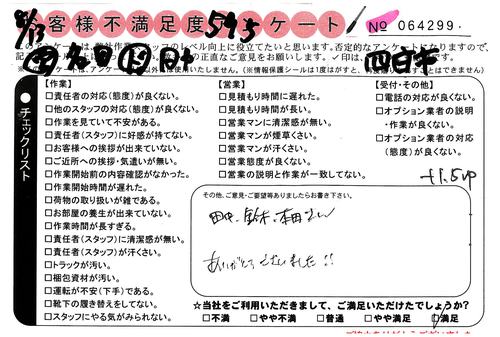 お客様不満足度アンケート
No 064299
このアンケートは、弊社作業スタッフのレベル向上に役立てたいと思います。否定的なアンケートになりますので、
四日市
チェックリスト
【作業】
□責任者の対応(態度)が良くない。
□他のスタッフの対応(態度)が良くない。
□作業を見ていて不安がある。
□責任者(スタッフ)に好感が持てない。
□お客様への挨拶が出来ていない。
□ご近所への挨拶・気遣いが無い。
□作業開始前の内容確認がなかった。
□作業開始時間が遅れた。
□荷物の取り扱いが雑である。
□お部屋の養生が出来ていない。
□作業時間が長すぎる。
□責任者(スタッフ)に清潔感が無い。
□責任者(スタッフ)が汗くさい。
□トラックが汚い。
□梱包資材が汚い。
□運転が不安(下手)である。
□靴下の履き替えをしてない。
□スタッフにやる気がみられない。
【営業】
□見積もり時間に遅れた。
□見積もり時間が長い。
□営業マンに清潔感が無い。
□営業マンが煙草くさい。
□営業マンが汗くさい。
□営業態度が良くない。
□営業の説明と作業が一致してない。
【受付・その他】
□電話の対応が良くない。
□オプション業者の説明
・作業が良くない。
□オプション業者の対応
(態度)が良くない。
+1.5up
その他、ご意見・ご要望等ありましたらお書き下さい。
田中、鈴木、本田さん
ありがとうございました!!
☆当社をご利用いただきまして、ご満足いただけたでしょうか?
□不満 □やや不満 □普通 □やや満足 □満足